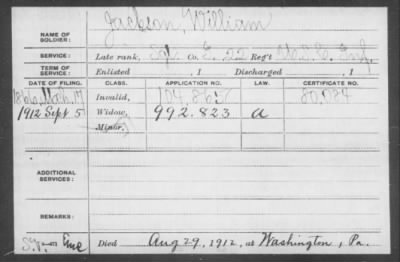 Jackson, William
NAME OF
SOLDIER:
SERVICE: Late rank, Co. E, 22 Reg't U.S.C. Inf.
TERM OF
SERVICE: Enlisted 1 Discharged 1
DATE OF FILING. CLASS. APPLICATION NO. LAW. CERTIFICATE NO.
Invalid,
1912 Sept 5 Widow, 992.823 a
Minor,
ADDITIONAL
SERVICES:
REMARKS:
Died Aug 29, 1912, at Washington, Pa.